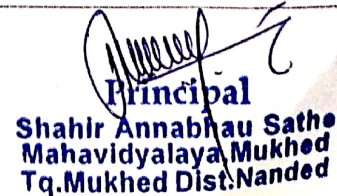 Principal
Shahir Annabhau Sathe
Mahavidyalaya, Mukhed
Tq.Mukhed Dist.Nanded